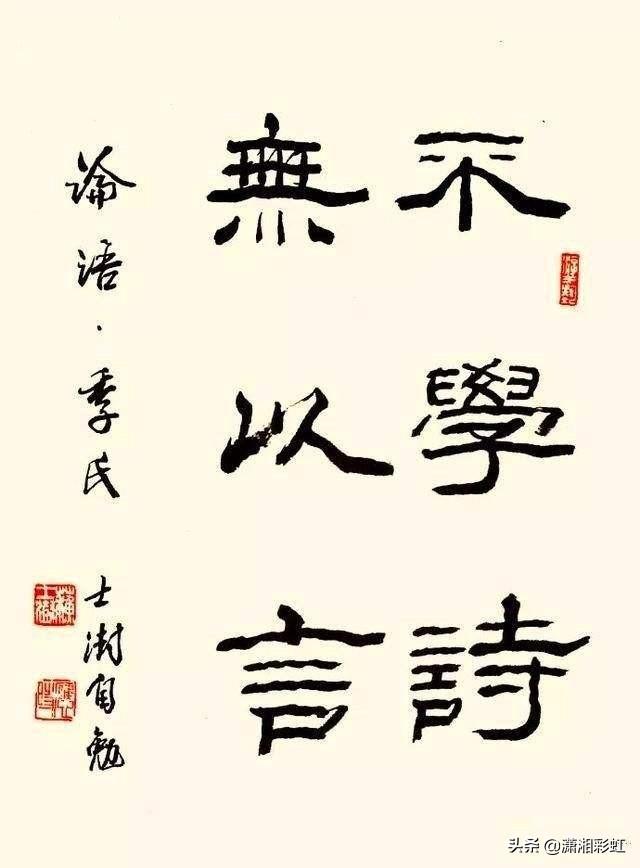 不學詩
無以言
論語·季氏
士澍自勉
头条 @潇湘彩虹